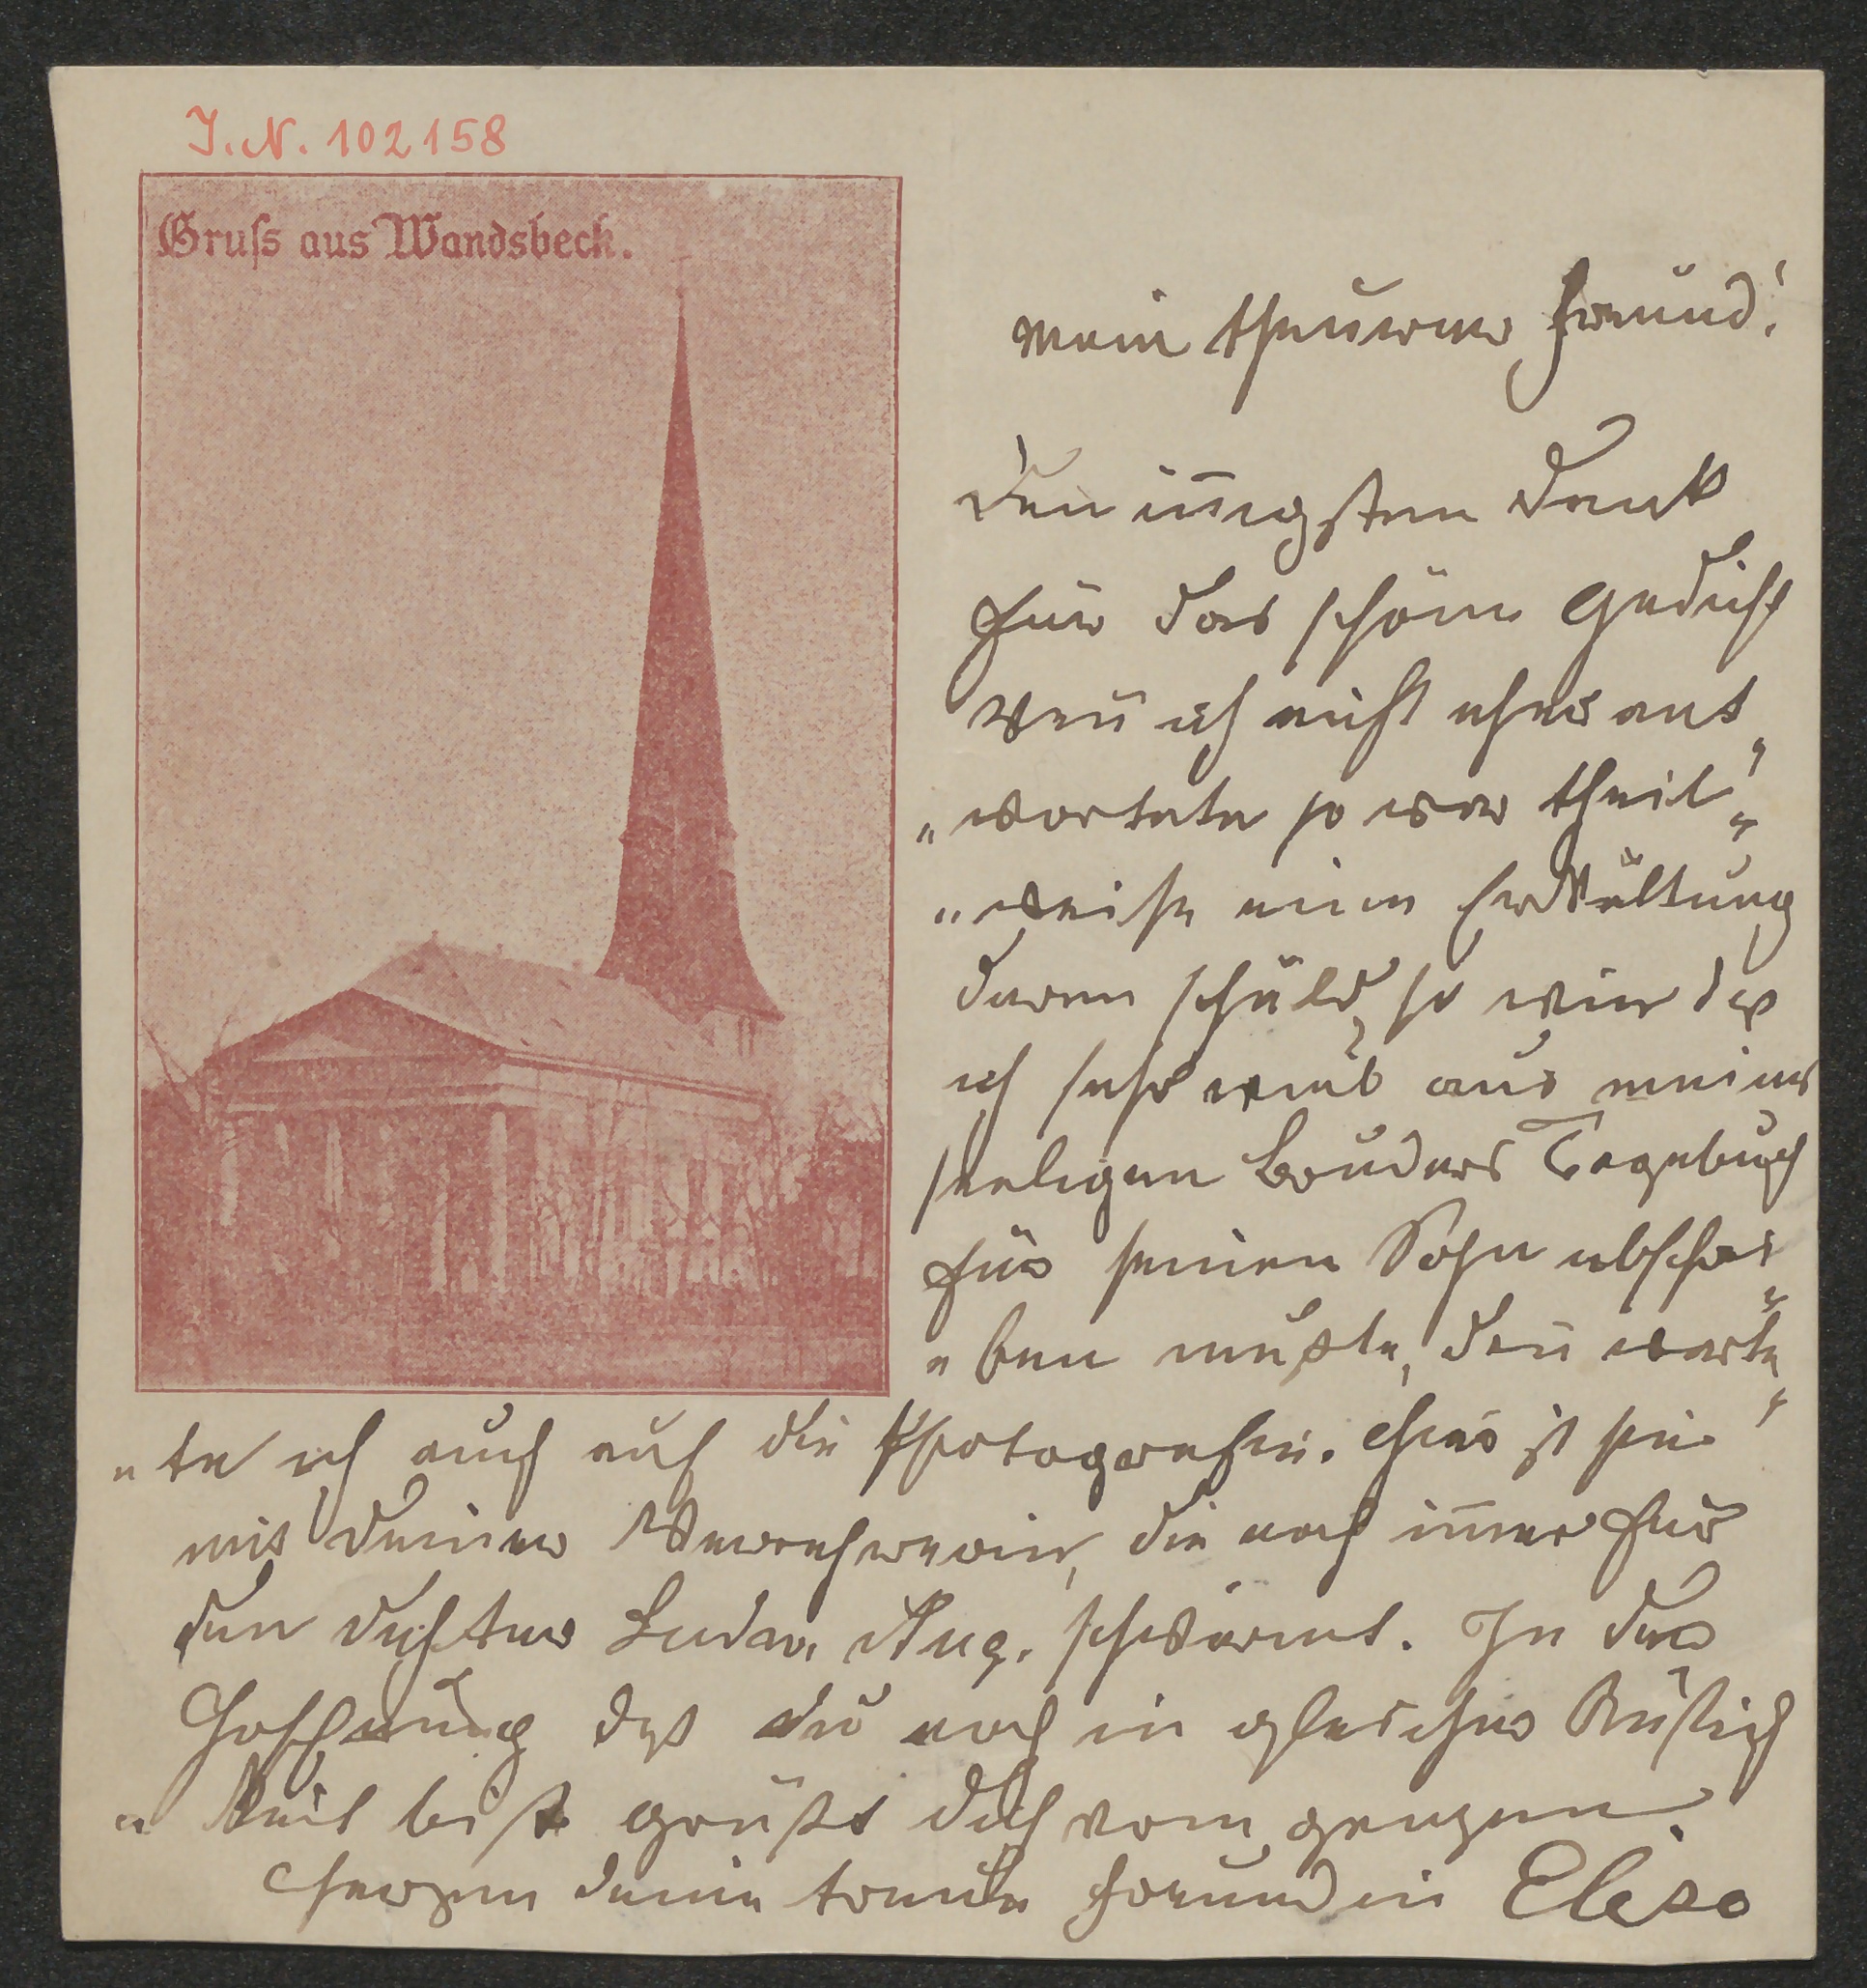 J. N. 102158
Gruſs aus Wandsbeck.
Mein theurer Freund!
Den iñigsten Dank
für das schöne Gedicht
Weñ ich nicht eher ant„
„wortete so war theil„
„weise eine Erkältung
daran schuld, so wie daß
ich sehr viel aus meines
seeligen Bruders Tagebuch
für seinen Sohn abschrei„
„ben mußte, deñ warte„
„te ich auch auf die Photografie. Hier ist sie
mit Deiner Verehrerin, die noch im̄er für
den Dichter Ludw. Aug. schwärmt. In der
Hoffnung daß du noch in gleicher Rüstig
„keit bist grüßt Dich vom ganzen
Herzen Deine treue Freundin